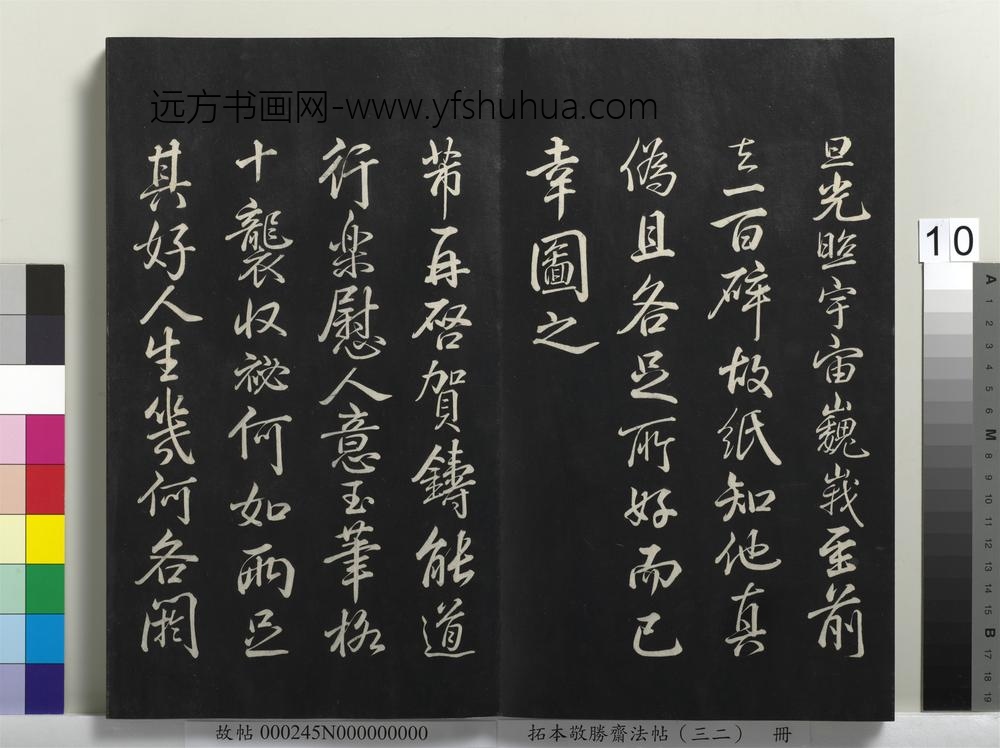 远方书画网-www.yfshuhua.com
旦光照宇宙巍峩至前
去一百碎故纸知他真
偽且各足所好而已
幸圖之
芾再啓賀鑄能道
行樂慰人意玉筆格
十襲收祕何如兩足
其好人生幾何各閑
10
A
1
2
3
4
5
6
M
8
9
10
11
12
13
14
15
B
17
18
19
故帖 000245N000000000
拓本敬勝齋法帖（三二） 冊